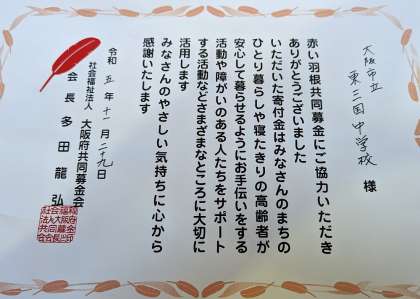 大阪市立
東三国中学校 様
赤い羽根共同募金にご協力いただき
ありがとうございました
いただいた寄付金はみなさんのまちの
ひとり暮らしや寝たきりの高齢者が
安心して暮らせるようにお手伝いをする
活動や障がいのある人たちをサポート
する活動などさまざまなところに大切に
活用します
みなさんのやさしい気持ちに心から
感謝いたします
令和 五 年 十一 月 二十九日
社会福祉法人 大阪府共同募金会
会 長 多 田 龍 弘